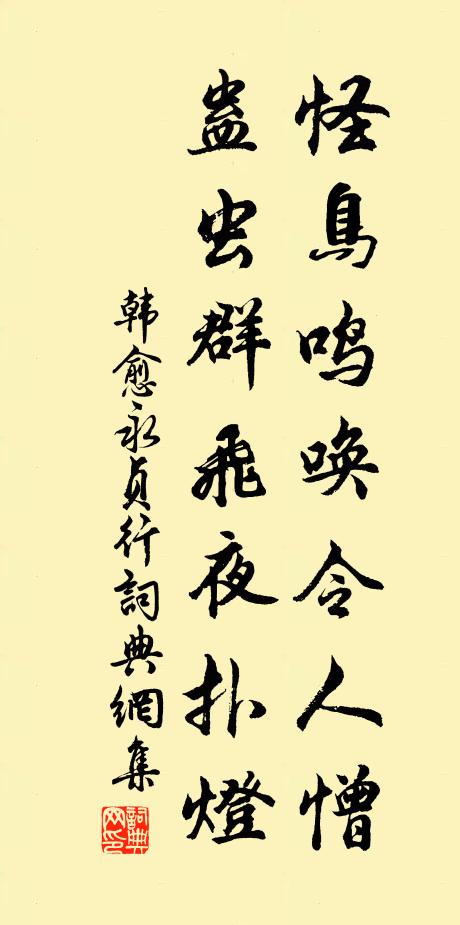 怪鳥鳴唤令人憎
蛊虫群飛夜扑燈
韩愈永貞行詞典網集
詞典网印